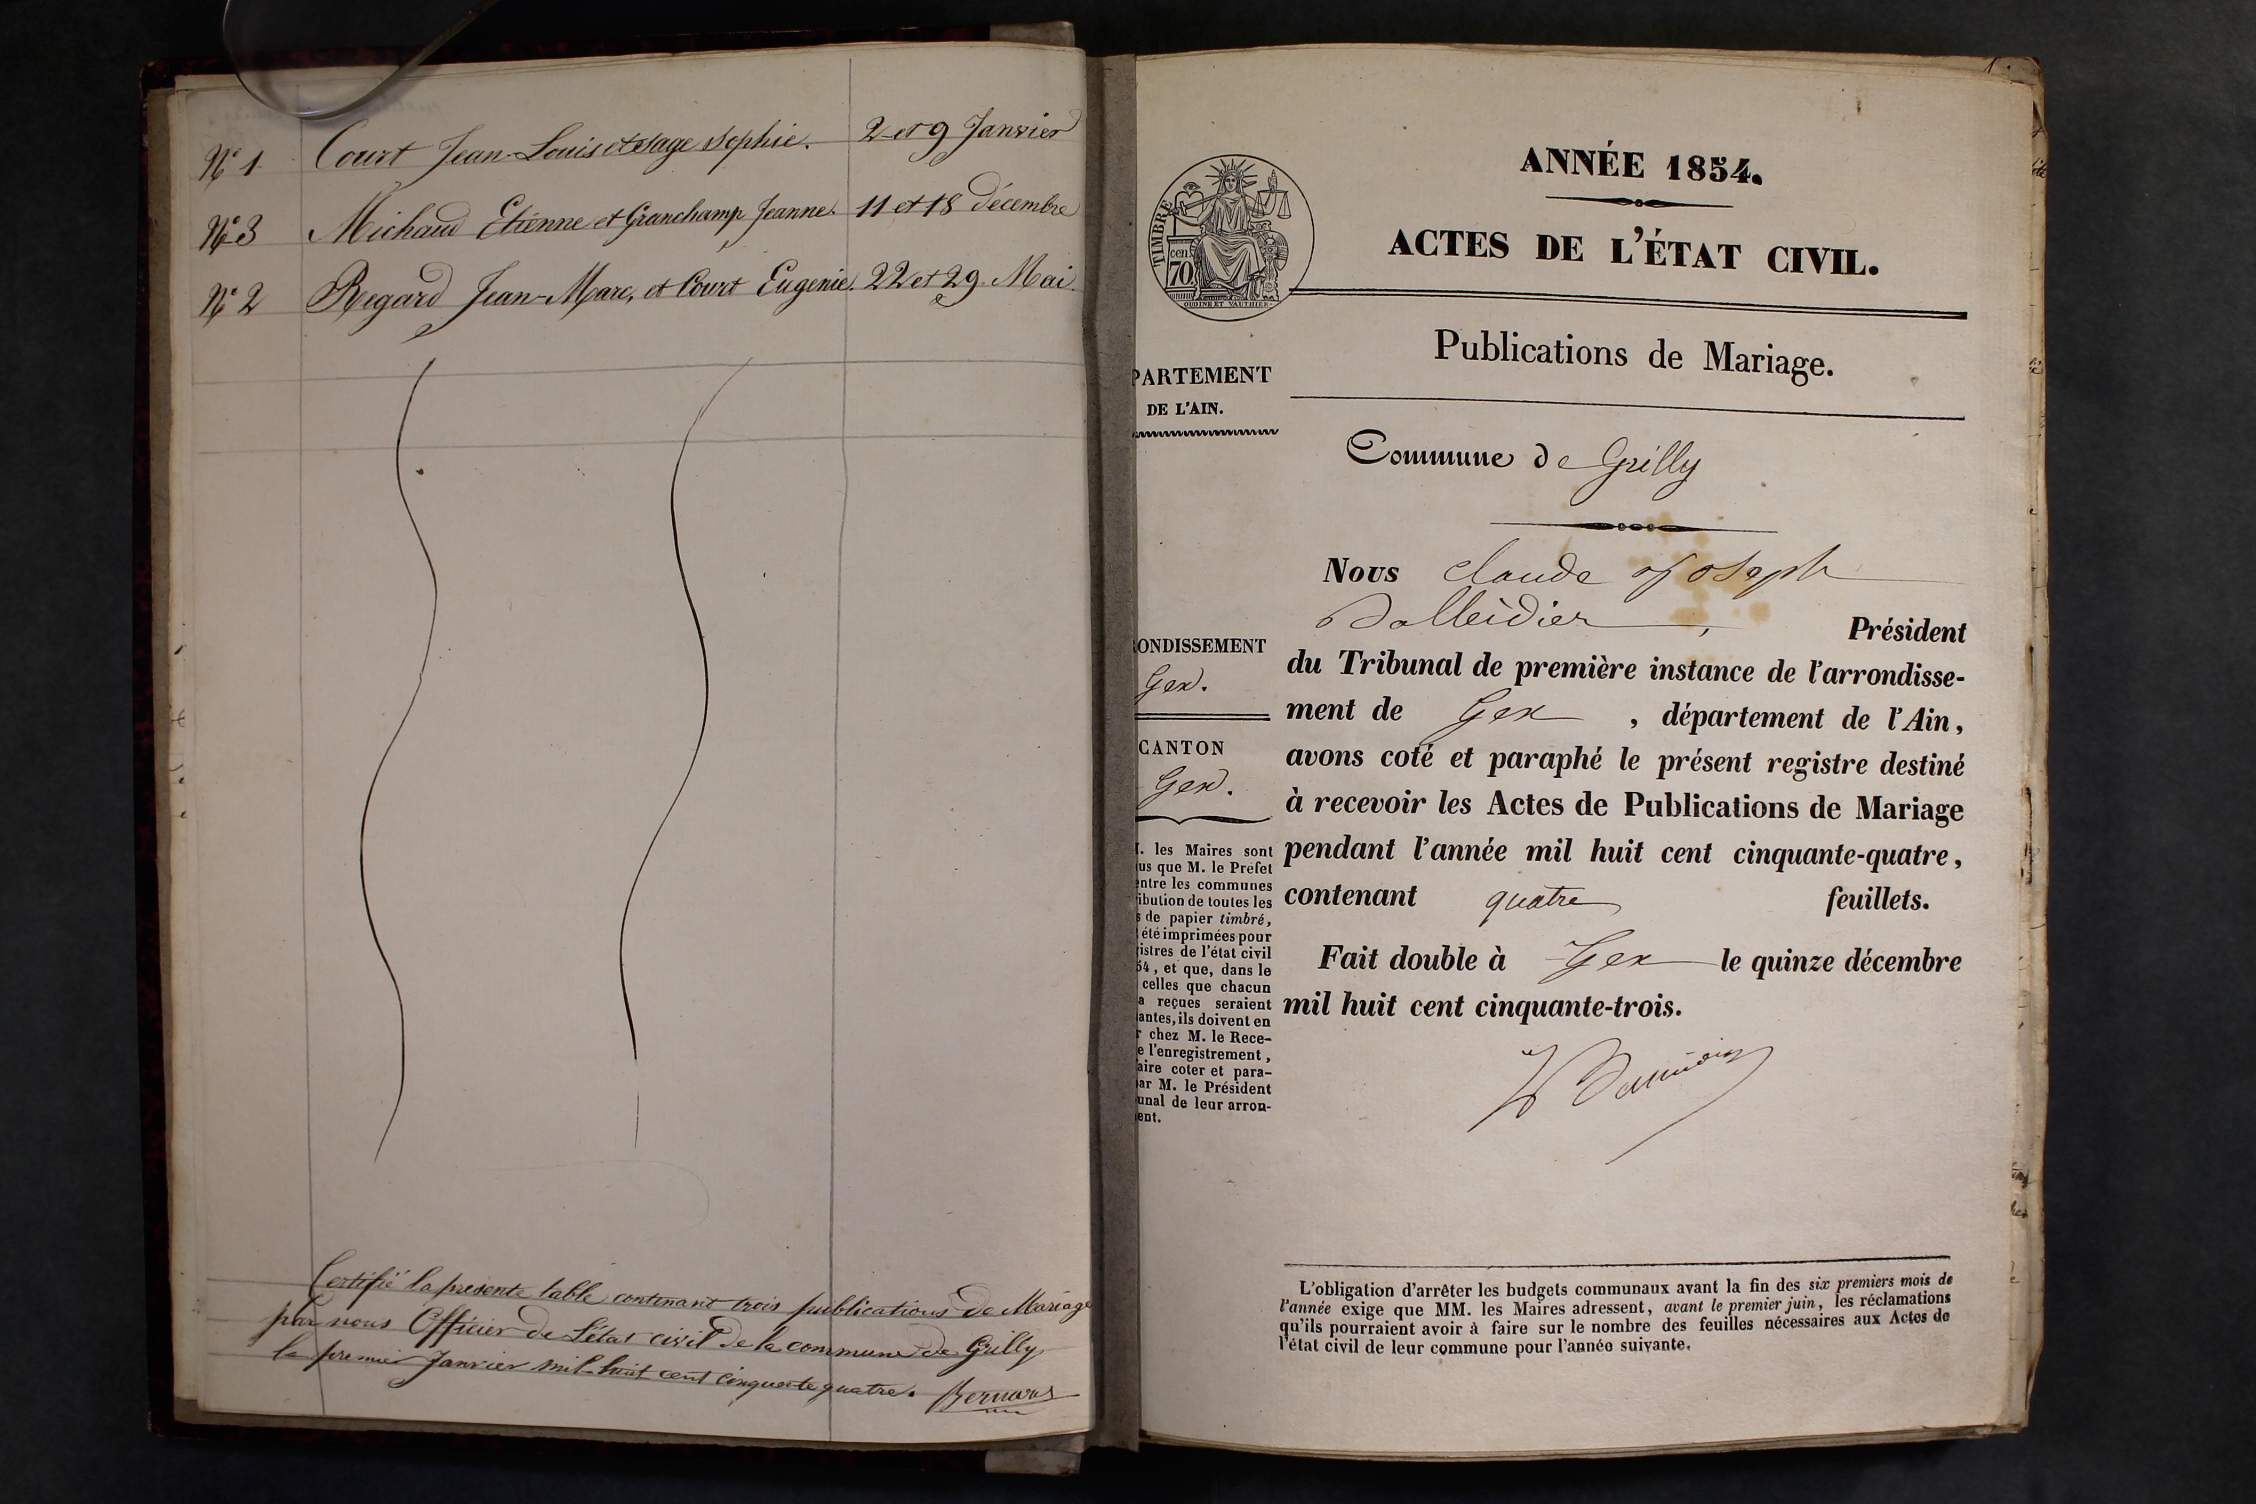 Nº 1 Court Jean-Louis et Sage Sophie. 2 et 9 Janvier
Nº 3 Michaud Etienne et Granchamp Jeanne. 11 et 18 décembre
Nº 2 Regard Jean-Marc, et Court Eugenie. 22 et 29. Mai.
Certifié la presente table contenant trois publications de Mariage
par nous Officier de l'état civil de la commune de Grilly
le premier Janvier mil huit cent cinquante quatre.
ANNÉE 1854.
ACTES DE L'ÉTAT CIVIL.
TIMBRE
cen.
70
OUDINE ET VAUTHIER
Publications de Mariage.
PARTEMENT
DE L'AIN.
Commune de Grilly
ONDISSEMENT
Gex.
CANTON
Gex.
. les Maires sont
us que M. le Prefet
entre les communes
ibution de toutes les
s de papier timbré,
été imprimées pour
istres de l'état civil
54, et que, dans le
celles que chacun
a reçues seraient
antes, ils doivent en
r chez M. le Rece-
e l'enregistrement,
aire coter et para-
ar M. le Président
unal de leur arron-
ent.
Nous Claude Joseph
Président
du Tribunal de première instance de l'arrondisse-
ment de Gex, département de l'Ain,
avons coté et paraphé le présent registre destiné
à recevoir les Actes de Publications de Mariage
pendant l'année mil huit cent cinquante-quatre,
contenant quatre feuillets.
Fait double à Gex le quinze décembre
mil huit cent cinquante-trois.
L'obligation d'arrêter les budgets communaux avant la fin des six premiers mois de
l'année exige que MM. les Maires adressent, avant le premier juin, les réclamations
qu'ils pourraient avoir à faire sur le nombre des feuilles nécessaires aux Actes de
l'état civil de leur commune pour l'année suivante.